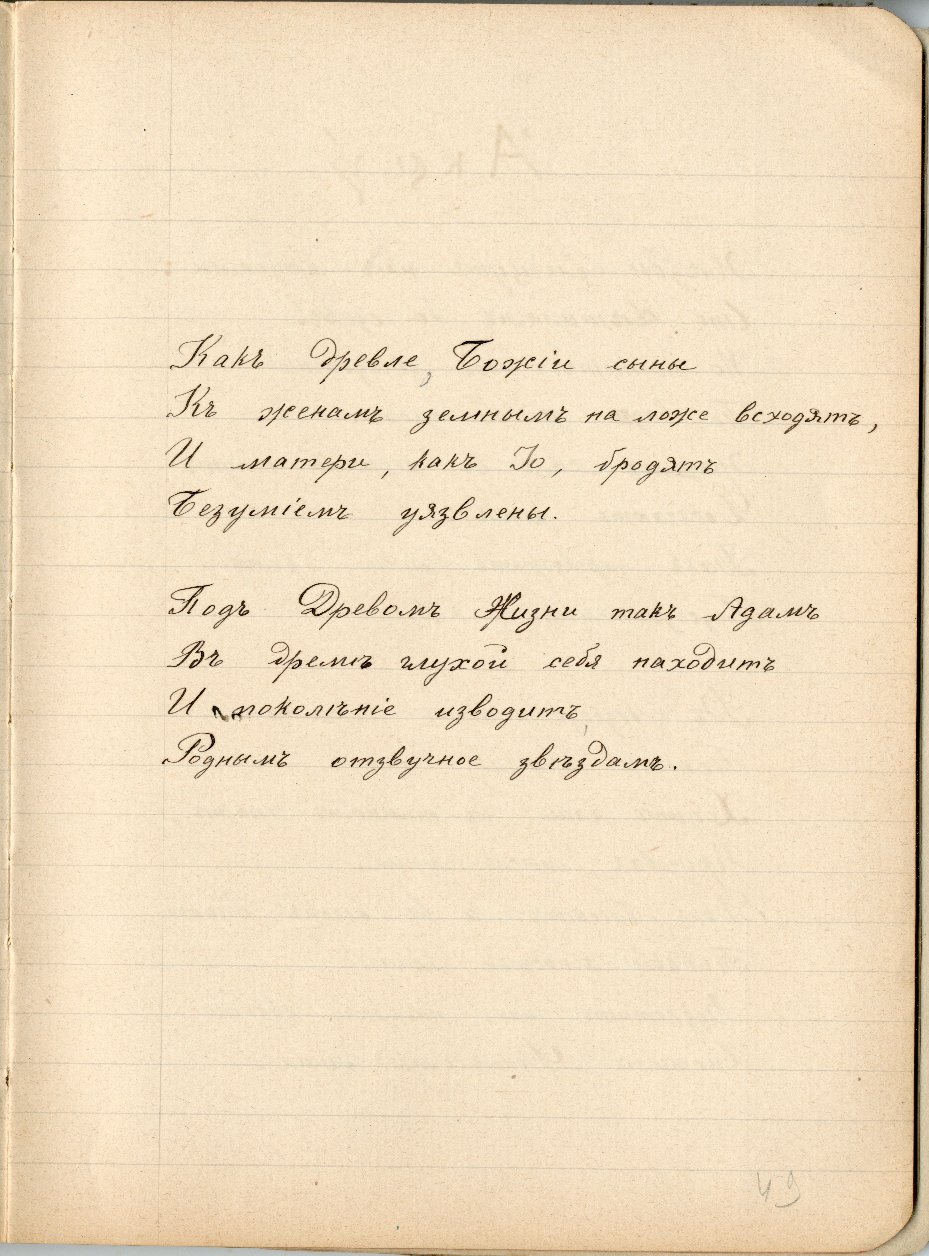 Какъ древле, Божіи сыны
Къ женамъ земнымъ на ложе всходятъ,
И матери, какъ Io, бродятъ
Безуміемъ уязвлены.
Подъ Древомъ Жизни такъ Адамъ
Въ дремѣ глухой себя находитъ
И поколѣніе изводитъ,
Роднымъ отзвучное звѣздамъ.
49